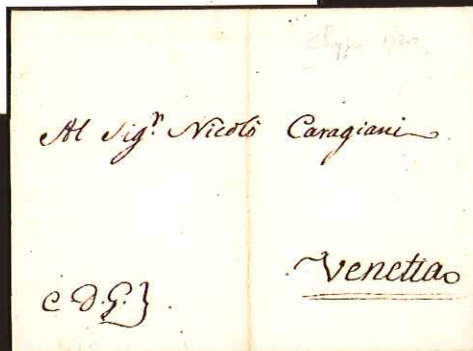 Al Sig.r Nicolò Caragiani
Venetia
C D. G. }